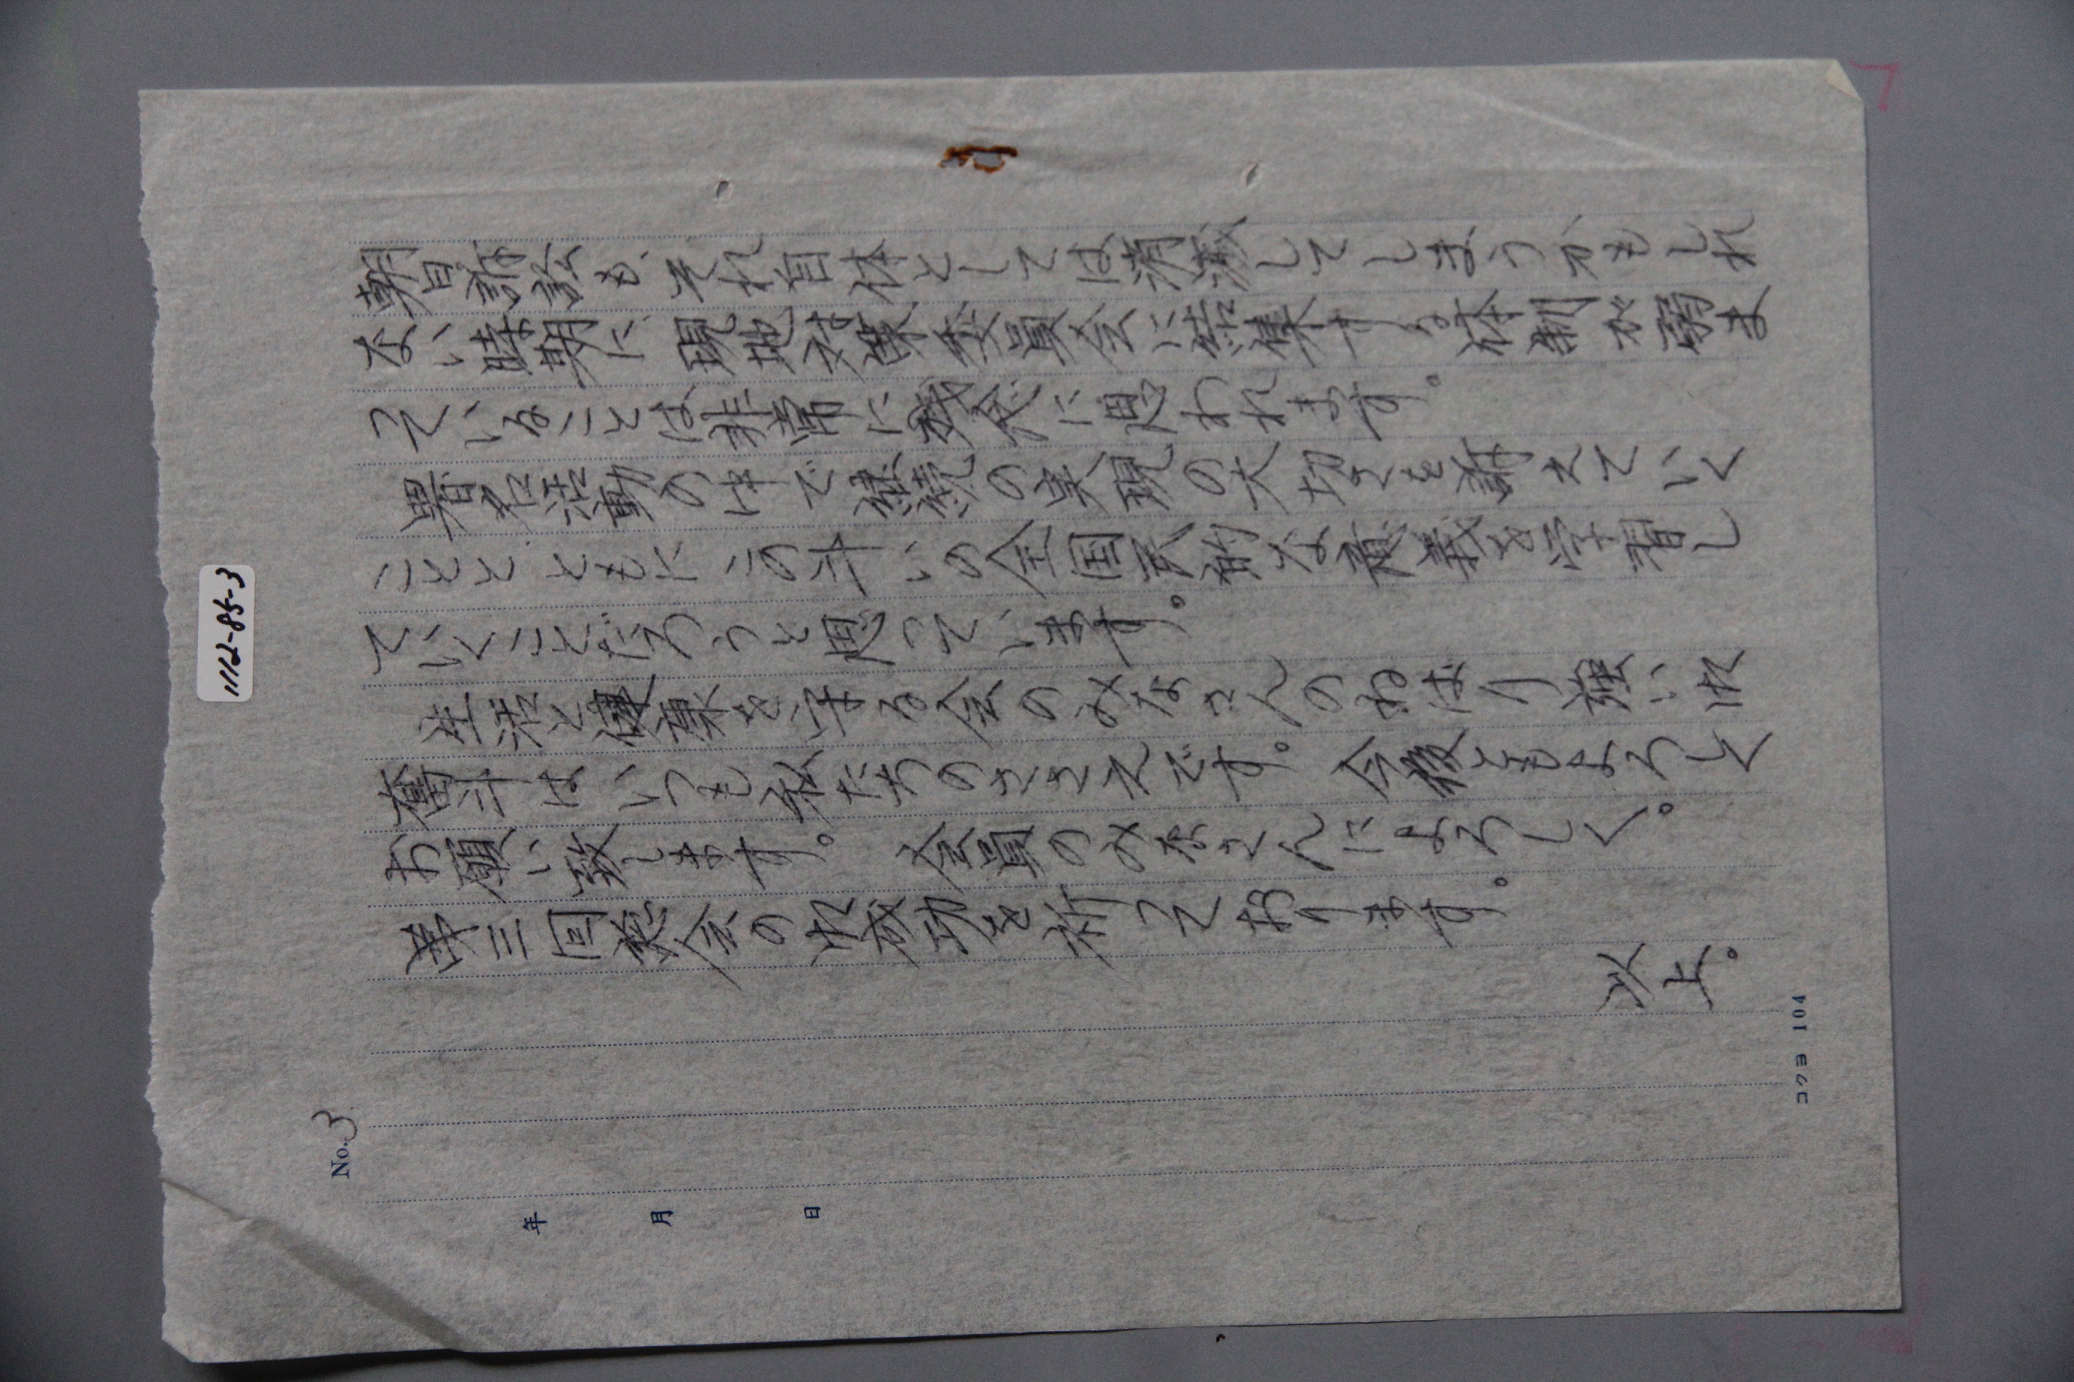 朝日訴訟も、それ自体としては消滅してしまうかもしれ
ない時期に、現地対策委員会に結集する体制が弱ま
っていることは非常に残念に思われます。
署名活動の中で憲法の実現の大切さを訴えていく
ことと、ともに、この斗いの全国民的な意義を学習し
ていくことだろうと思っています。
生活と健康を守る会のみなさんのねばり強い
奮斗はいつも私たちのささえです。今後ともよろしく
お願い致します。会員のみなさんによろしく。
第三回総会の大成功を祈っております。
以上。
No.3
年 月 日
コクヨ 104
1112-85-3